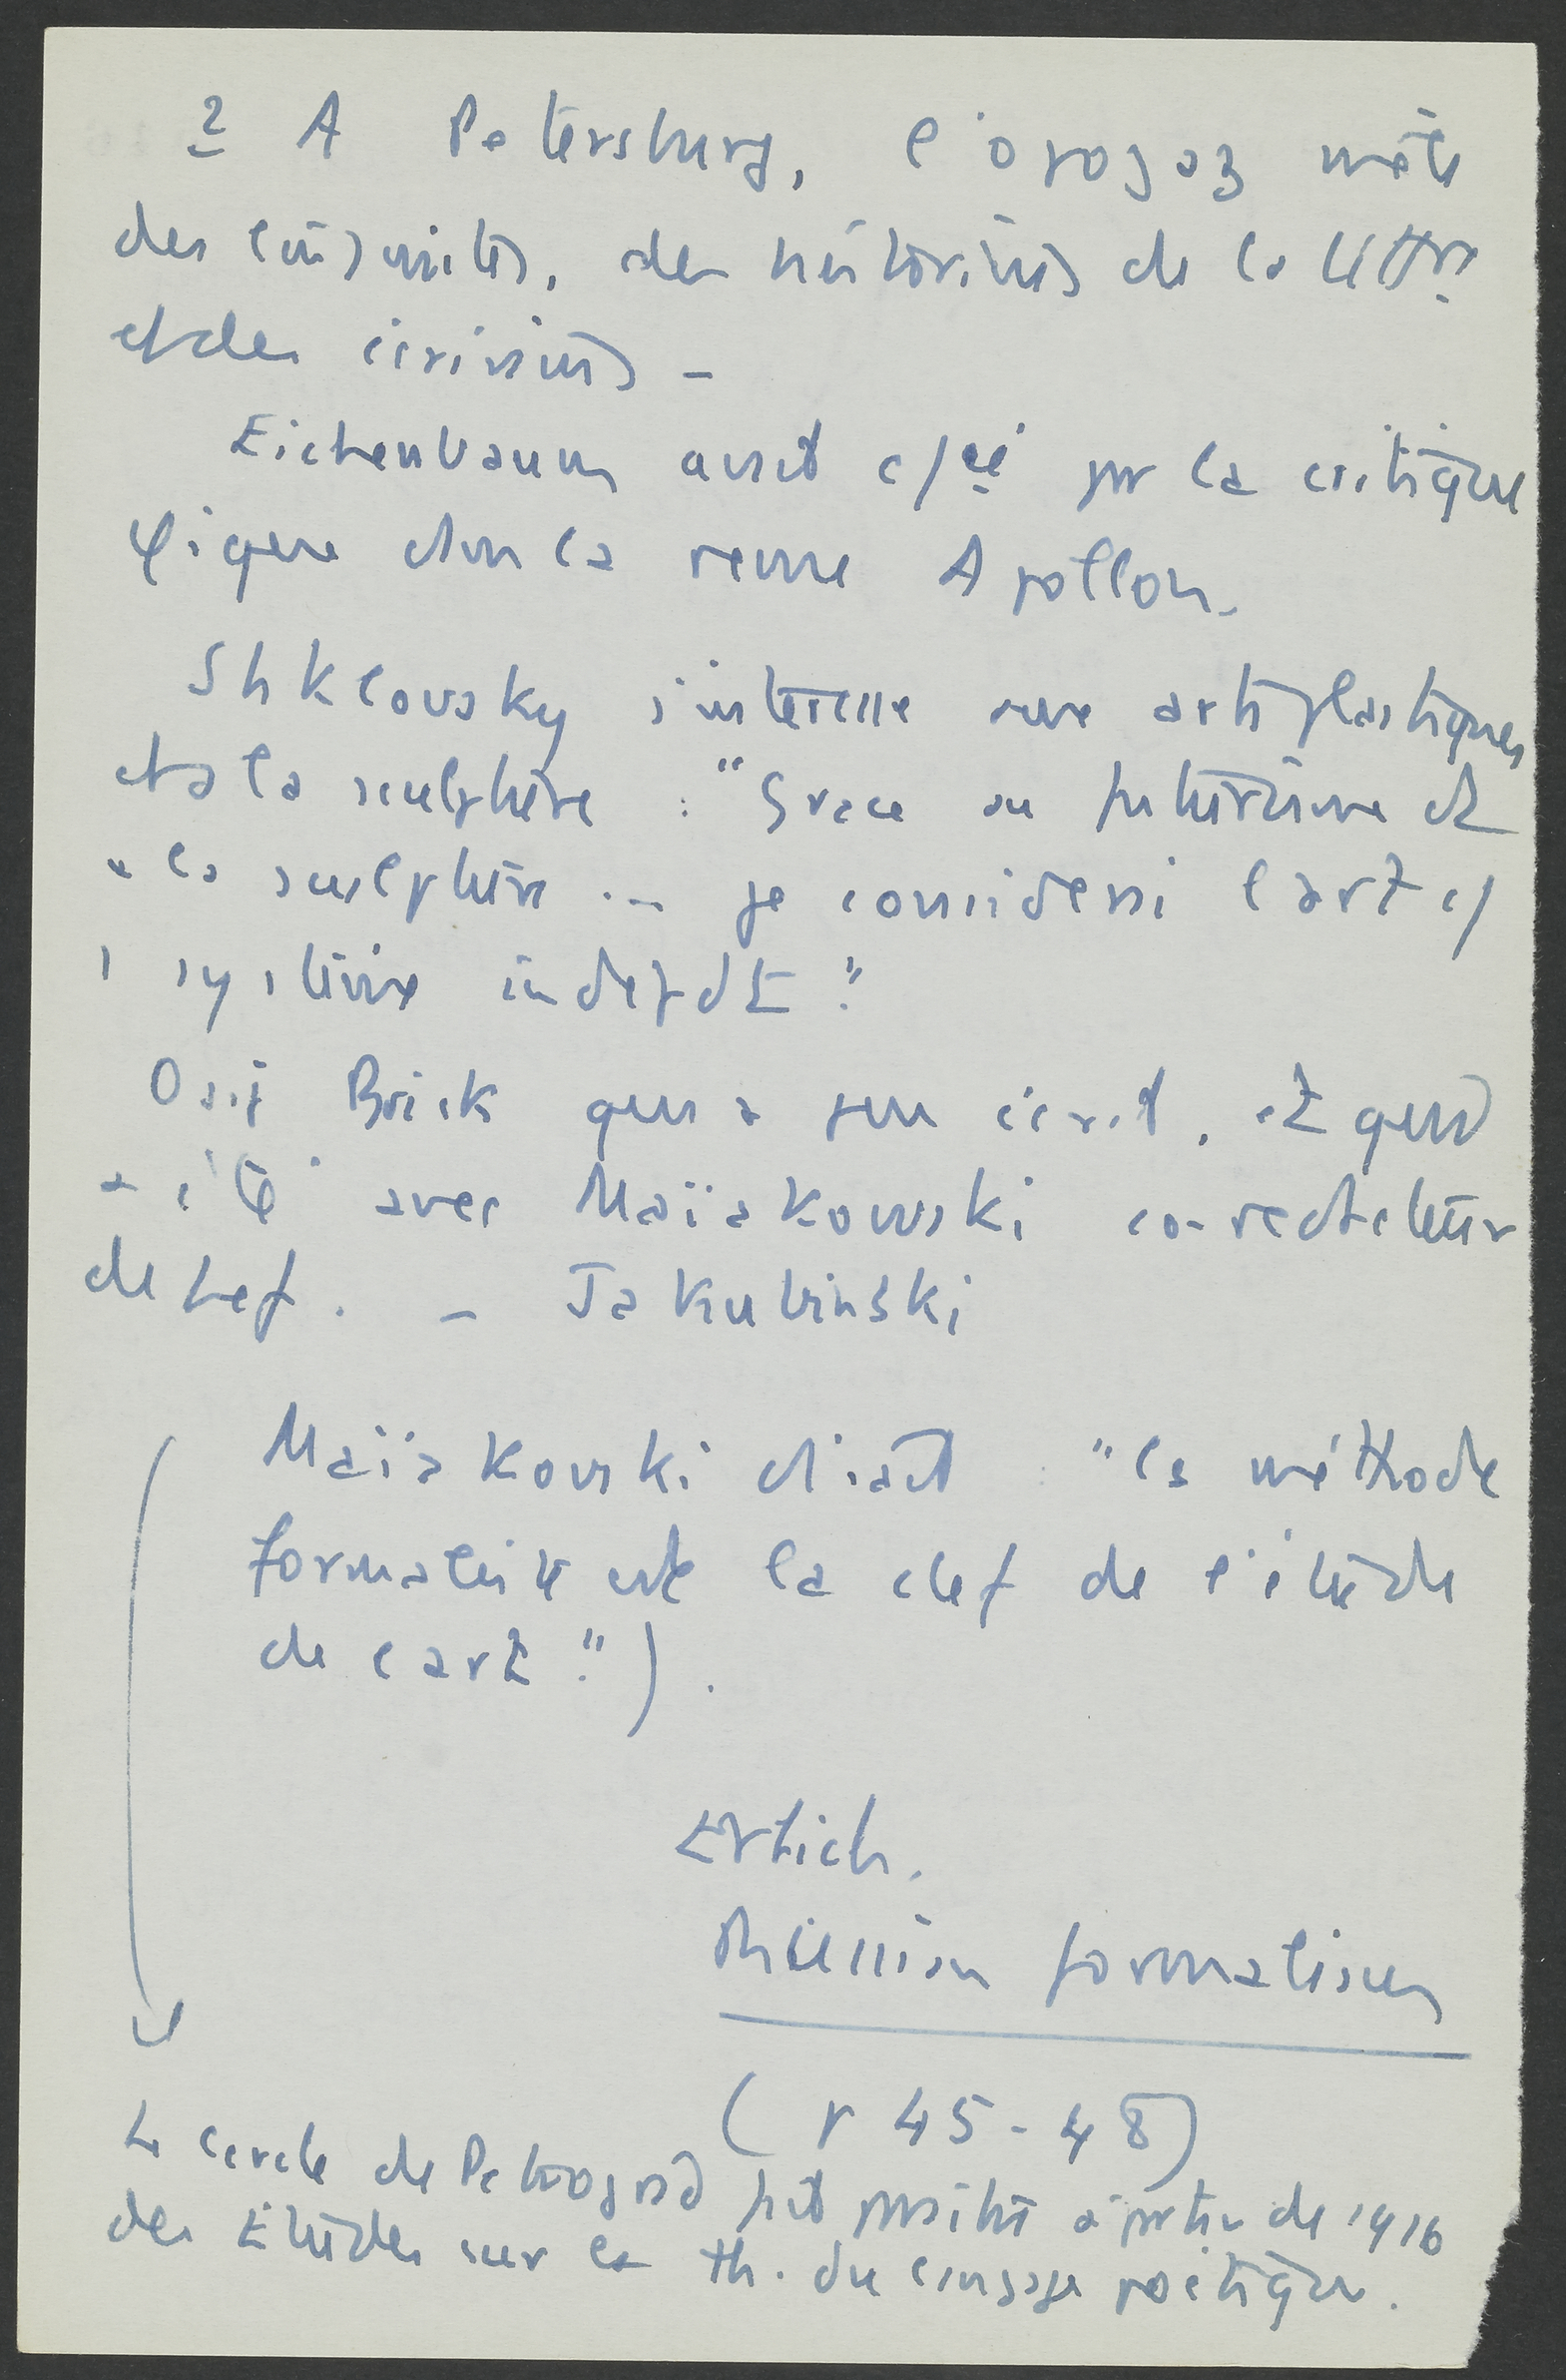 2 A Petersburg, l'opojaz mêle
des linguistes, des historiens de la littre
et des écrivains -
Eichenbaum avait c/cé par la critique
φique dans la revue Apollon.
Shklovsky s'intéresse aux arts plastiques
et à la sculpture : "Grace au futurisme et
à la sculpture ... je considérai l'art c/
1 système indepdt."
Osip Brik qui a peu écrit, et qui
a été avec Maïakowski co-rédacteur
de Lef. - Jakubinski
(Maïakovski disait "la méthode
formaliste est la clef de l'étude
de l'art.").
Erlich.
Russian formalism
(p 45-48)
Le cercle de Petrograd fit paraître à partir de 1916
des Études sur la th. du langage poétique.